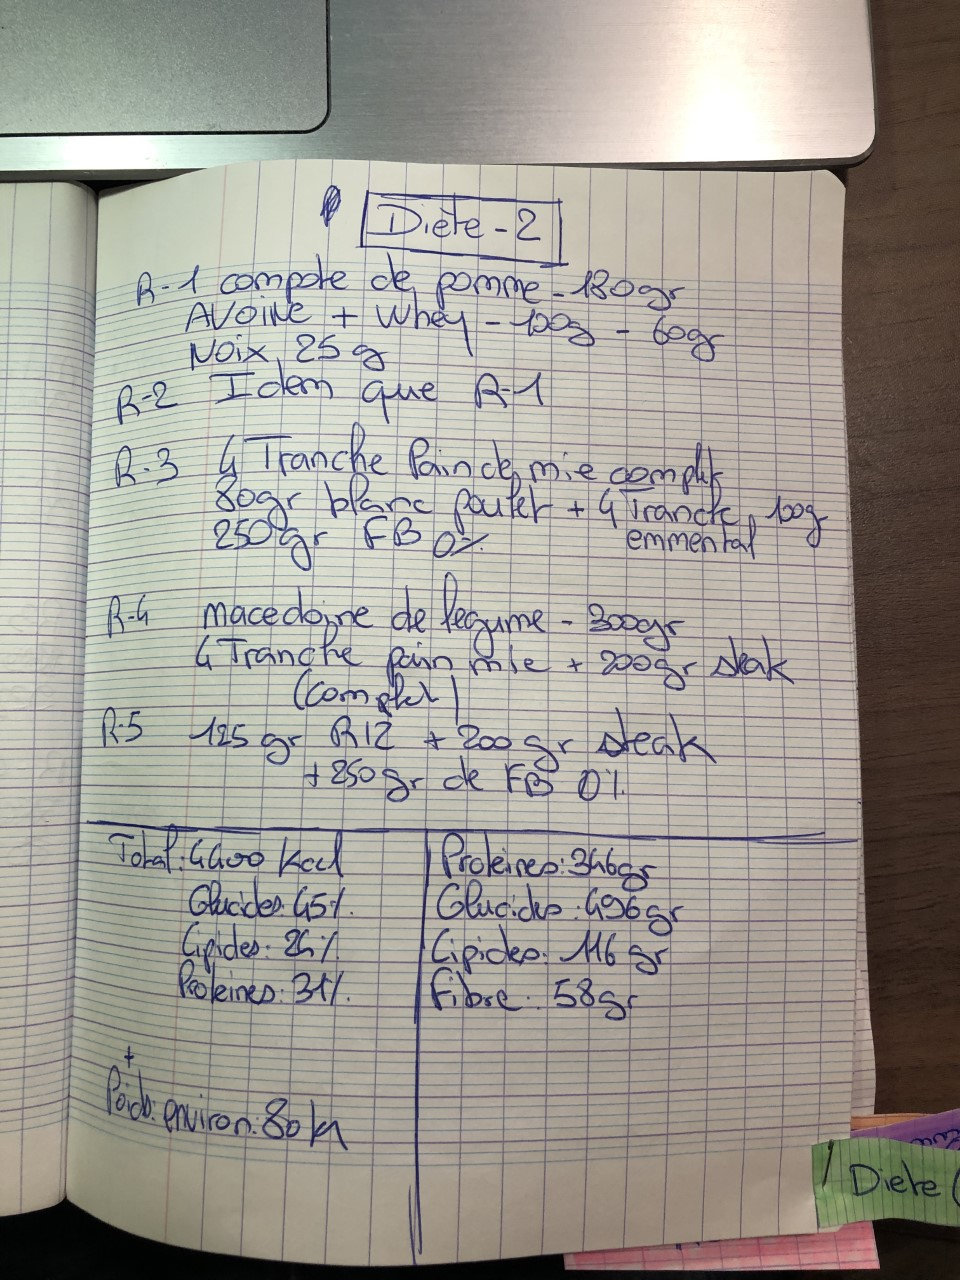 Diète - 2
R-1 compote de pomme - 180gr
AVOINE + Whey - 100g - 60gr
Noix 25 g
R-2 Idem que R-1
R-3 4 Tranche Pain de mie complet
80gr blanc poulet + 4 Tranche 100g
250 gr FB 0% emmental
R-4 macedoine de legume - 300gr
4 Tranche pain mie + 200gr steak
(complet)
R-5 125 gr RIZ + 200 gr steak
+ 250gr de FB 0%
Total: 4400 Kcal
Glucides: 45%.
Lipides: 24%.
Proteines: 31%.
Proteines: 346gr
Glucides: 496gr
Lipides: 116 gr
Fibre: 58gr
+
Poids: environ: 80 k
Diete